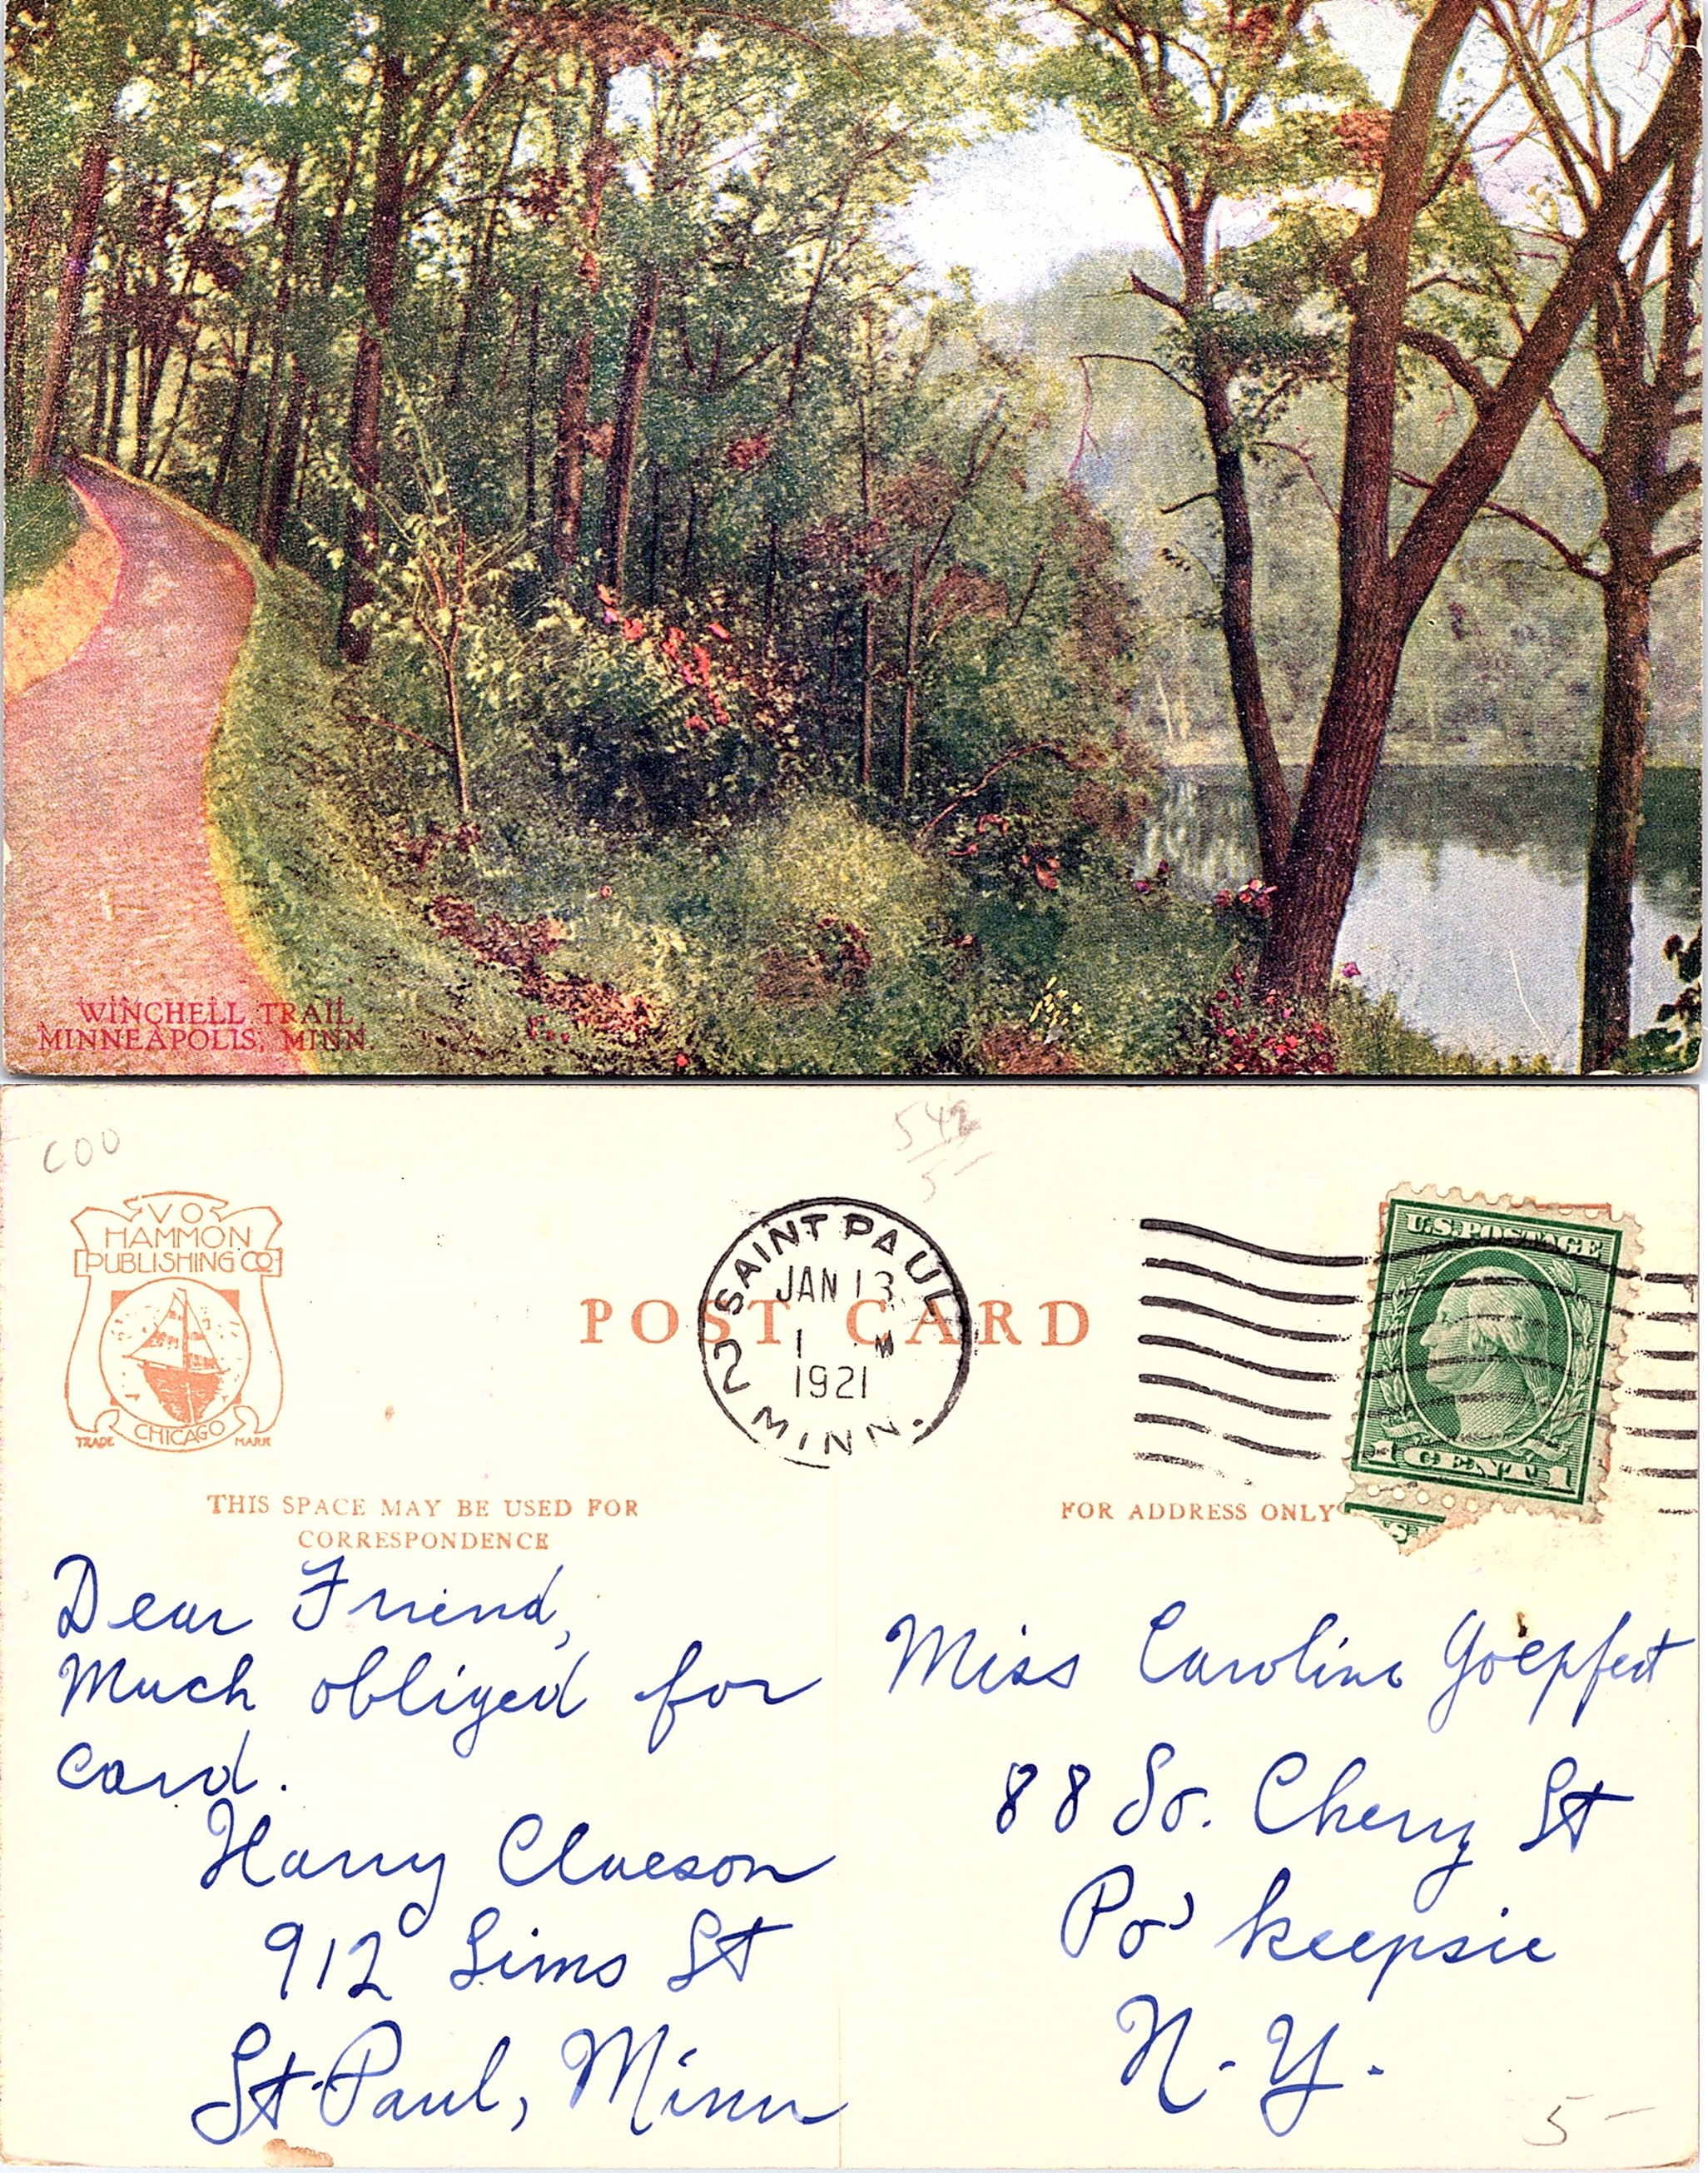 WINCHELL TRAIL
MINNEAPOLIS, MINN.
COO
542
5
V O
HAMMON
PUBLISHING CO
CHICAGO
TRADE MARK
POST CARD
SAINT PAUL
JAN 13
1 M
1921
2 MINN.
U.S. POSTAGE
1 CENT 1
THIS SPACE MAY BE USED FOR
CORRESPONDENCE
FOR ADDRESS ONLY
Dear Friend,
Much obliged for
card.
Harry Claeson
912 Sims St
St. Paul, Minn
Miss Caroline Goepfert
88 So. Cherry St
Po' keepsie
N.Y.
5-